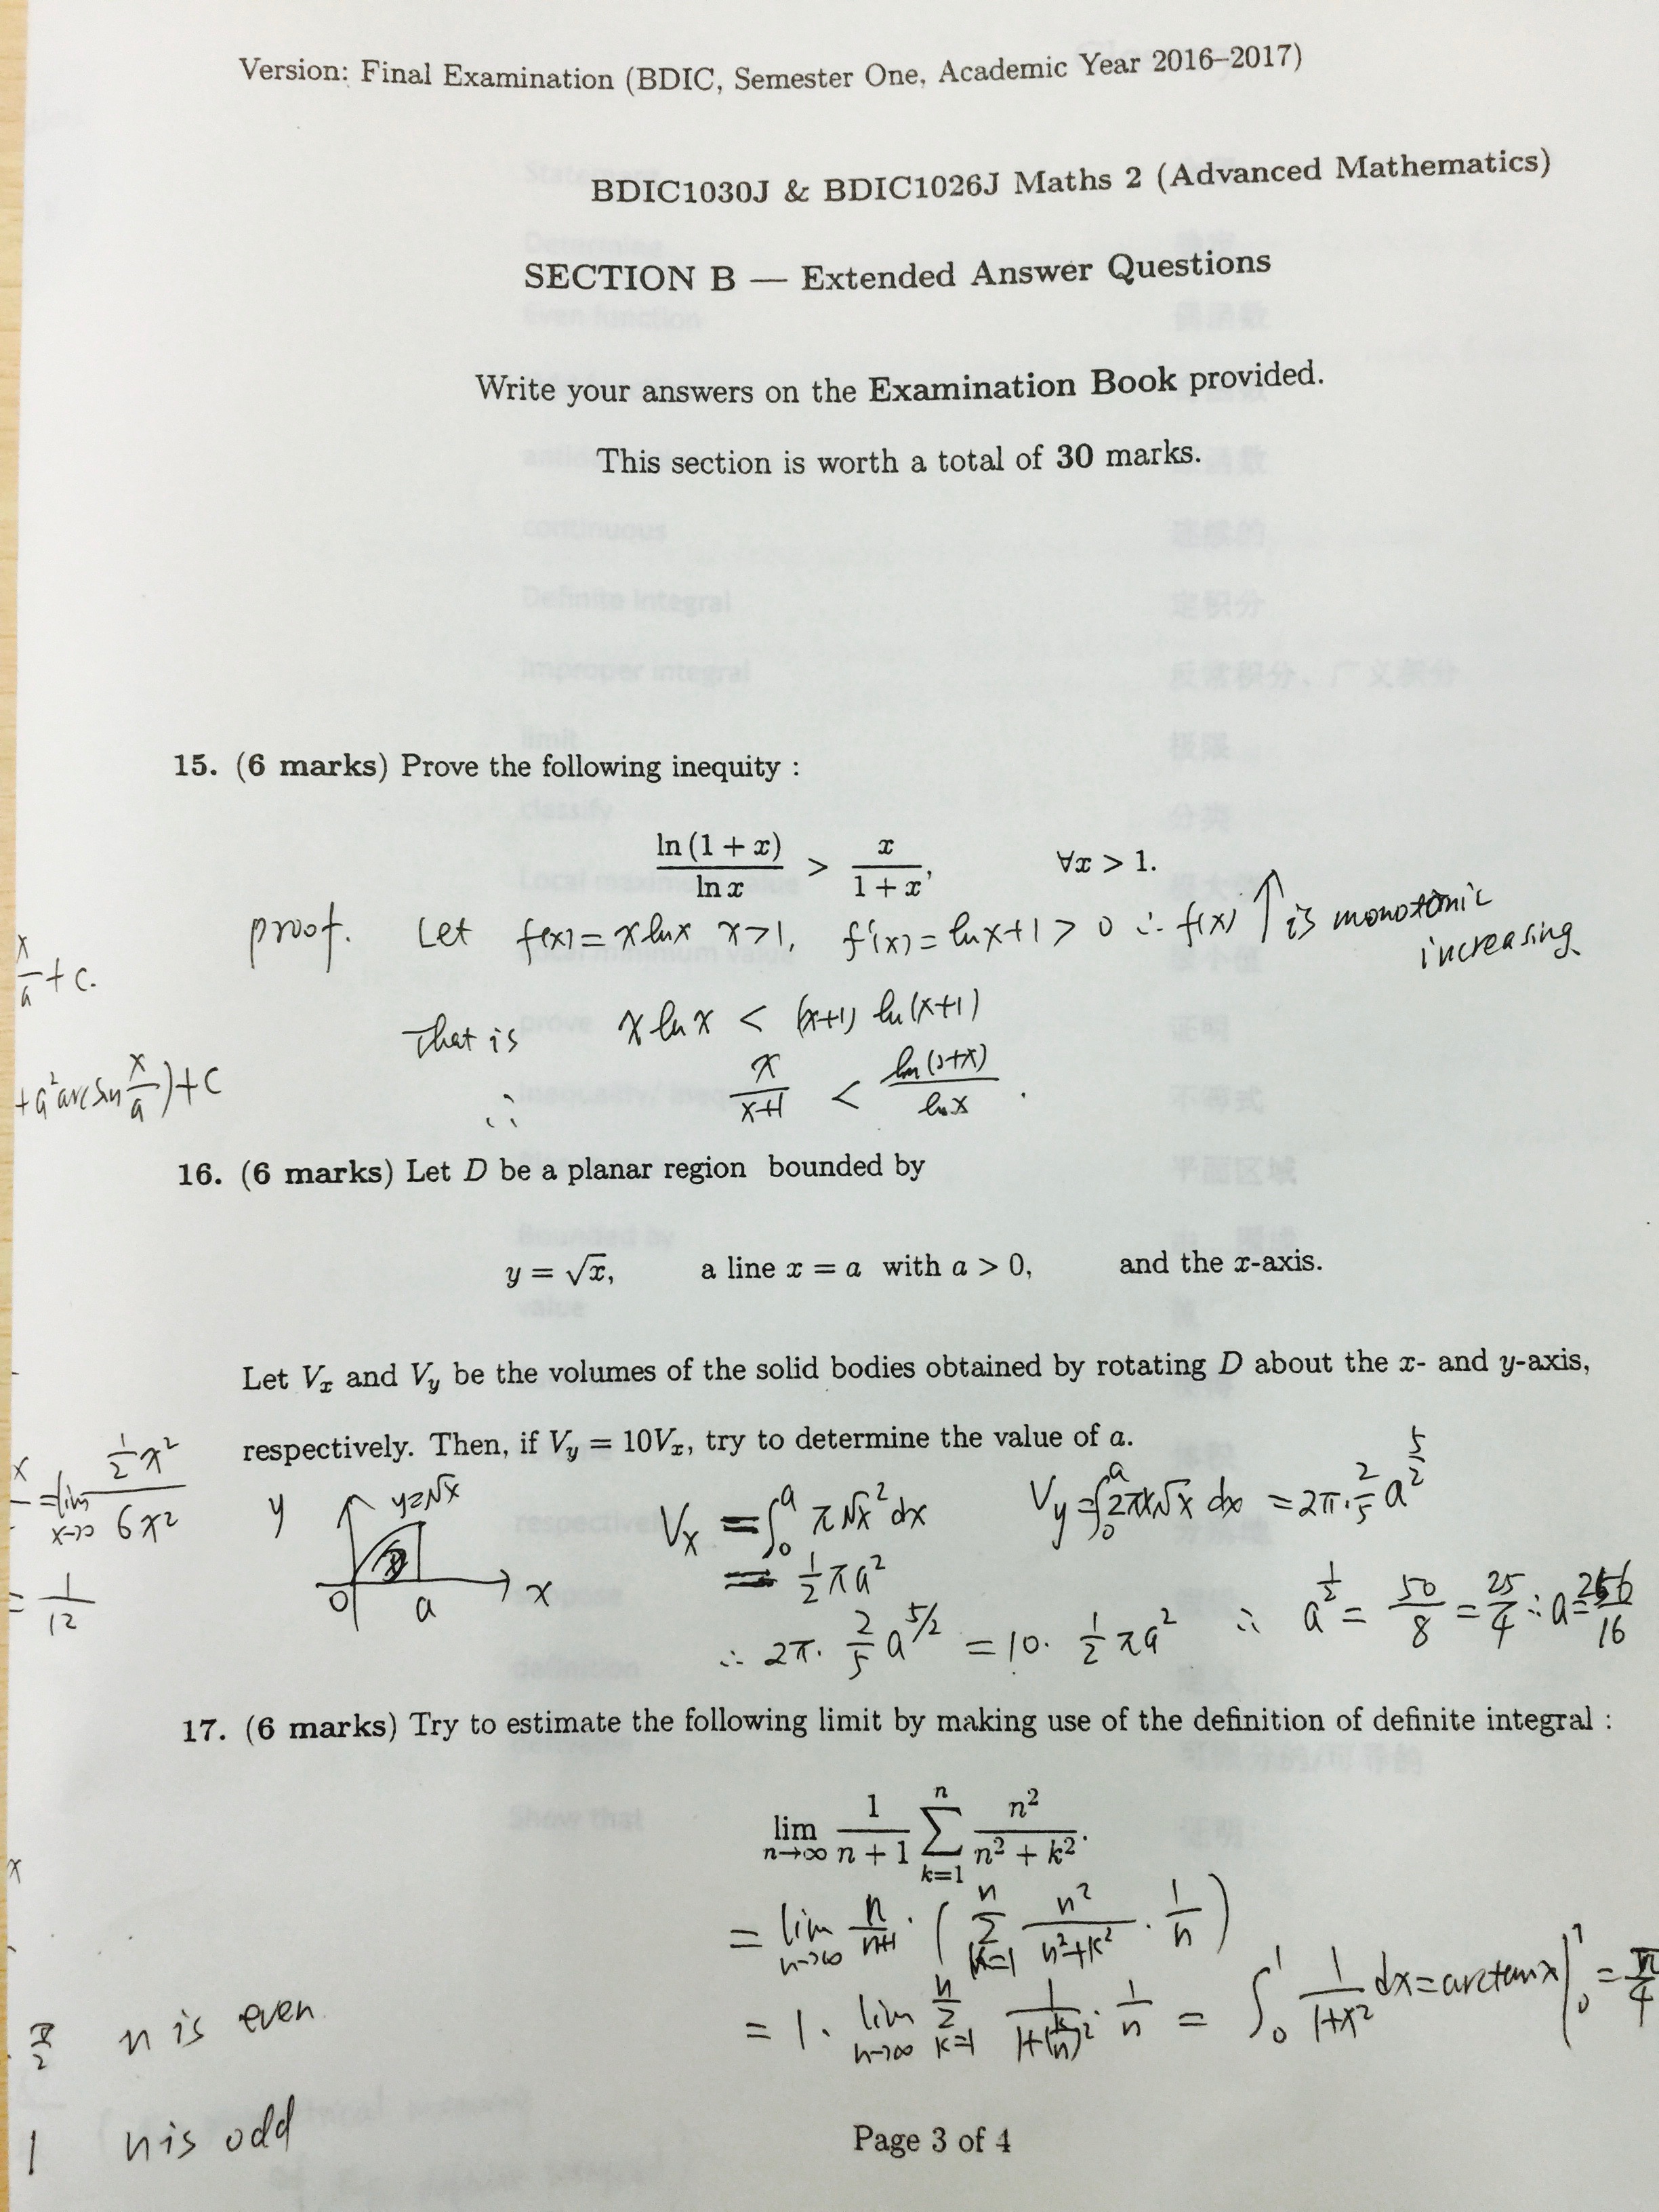 Version: Final Examination (BDIC, Semester One, Academic Year 2016–2017)
BDIC1030J & BDIC1026J Maths 2 (Advanced Mathematics)
SECTION B — Extended Answer Questions
Write your answers on the Examination Book provided.
This section is worth a total of 30 marks.
15. (6 marks) Prove the following inequity :
ln (1 + x) / ln x > x / 1 + x, ∀x > 1.
proof. Let f(x) = x ln x x>1, f'(x) = ln x + 1 > 0 ∴ f(x) ↑ is monotonic
increasing
x/a + c.
That is x ln x < (x+1) ln(x+1)
+ a² arcsin x/a ) + c
∴ x / x+1 < ln(1+x) / ln x .
16. (6 marks) Let D be a planar region bounded by
y = √x, a line x = a with a > 0, and the x-axis.
Let Vx and Vy be the volumes of the solid bodies obtained by rotating D about the x- and y-axis,
respectively. Then, if Vy = 10Vx, try to determine the value of a.
x = lim x→0 ½x² / 6x²
= 1/12
y y=√x D 0 a x
Vx = ∫₀ᵃ π√x² dx Vy = ∫₀ᵃ 2πx√x dx = 2π · 2/5 a^5/2
= ½ πa²
∴ 2π · 2/5 a^5/2 = 10 · ½ πa² ∴ a^½ = 50/8 = 25/4 ∴ a = /16
17. (6 marks) Try to estimate the following limit by making use of the definition of definite integral :
lim n→∞ 1 / n + 1 ∑ k=1 n n² / n² + k² .
= lim n→∞ n / n+1 · ( ∑ k=1 n n² / n²+k² · 1/n )
= 1 · lim n→∞ ∑ k=1 n 1 / 1+(k/n)² · 1/n = ∫₀¹ 1 / 1+x² dx = arctan x |₀¹ = π/4
π/2 n is even.
1 n is odd
Page 3 of 4